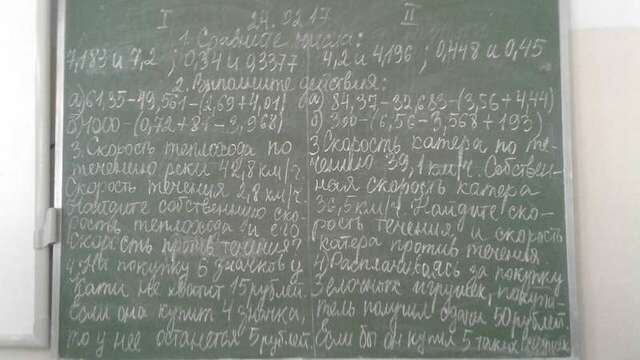 I 24.02.17 II
1. Сравните числа:
7,183 и 7,2 ; 0,34 и 0,3377
2. Выполните действия:
а) 61,35-49,561-(2,69+4,01)
б) 1000-(0,72+81-3,968)
3. Скорость теплохода по
течению реки 42,8 км/ч.
Скорость течения 2,8 км/ч.
Найдите собственную ско-
рость теплохода и его
скорость против течения?
4. На покупку 6 значков у
Кати не хватит 15 рублей.
Если она купит 4 значка,
то у нее останется 5 рублей.
4,2 и 4,196 ; 0,448 и 0,45
а) 84,37-32,683-(3,56+4,44)
б) 300-(6,56-3,568+193)
3. Скорость катера по те-
чению 39,1 км/ч. Собствен-
ная скорость катера
36,5 км/ч. Найдите ско-
рость течения и скорость
катера против течения
4. Расплачиваясь за покупку
3 елочных игрушек, покупа-
тель получил сдачи 50 рублей.
Если бы он купил 5 таких